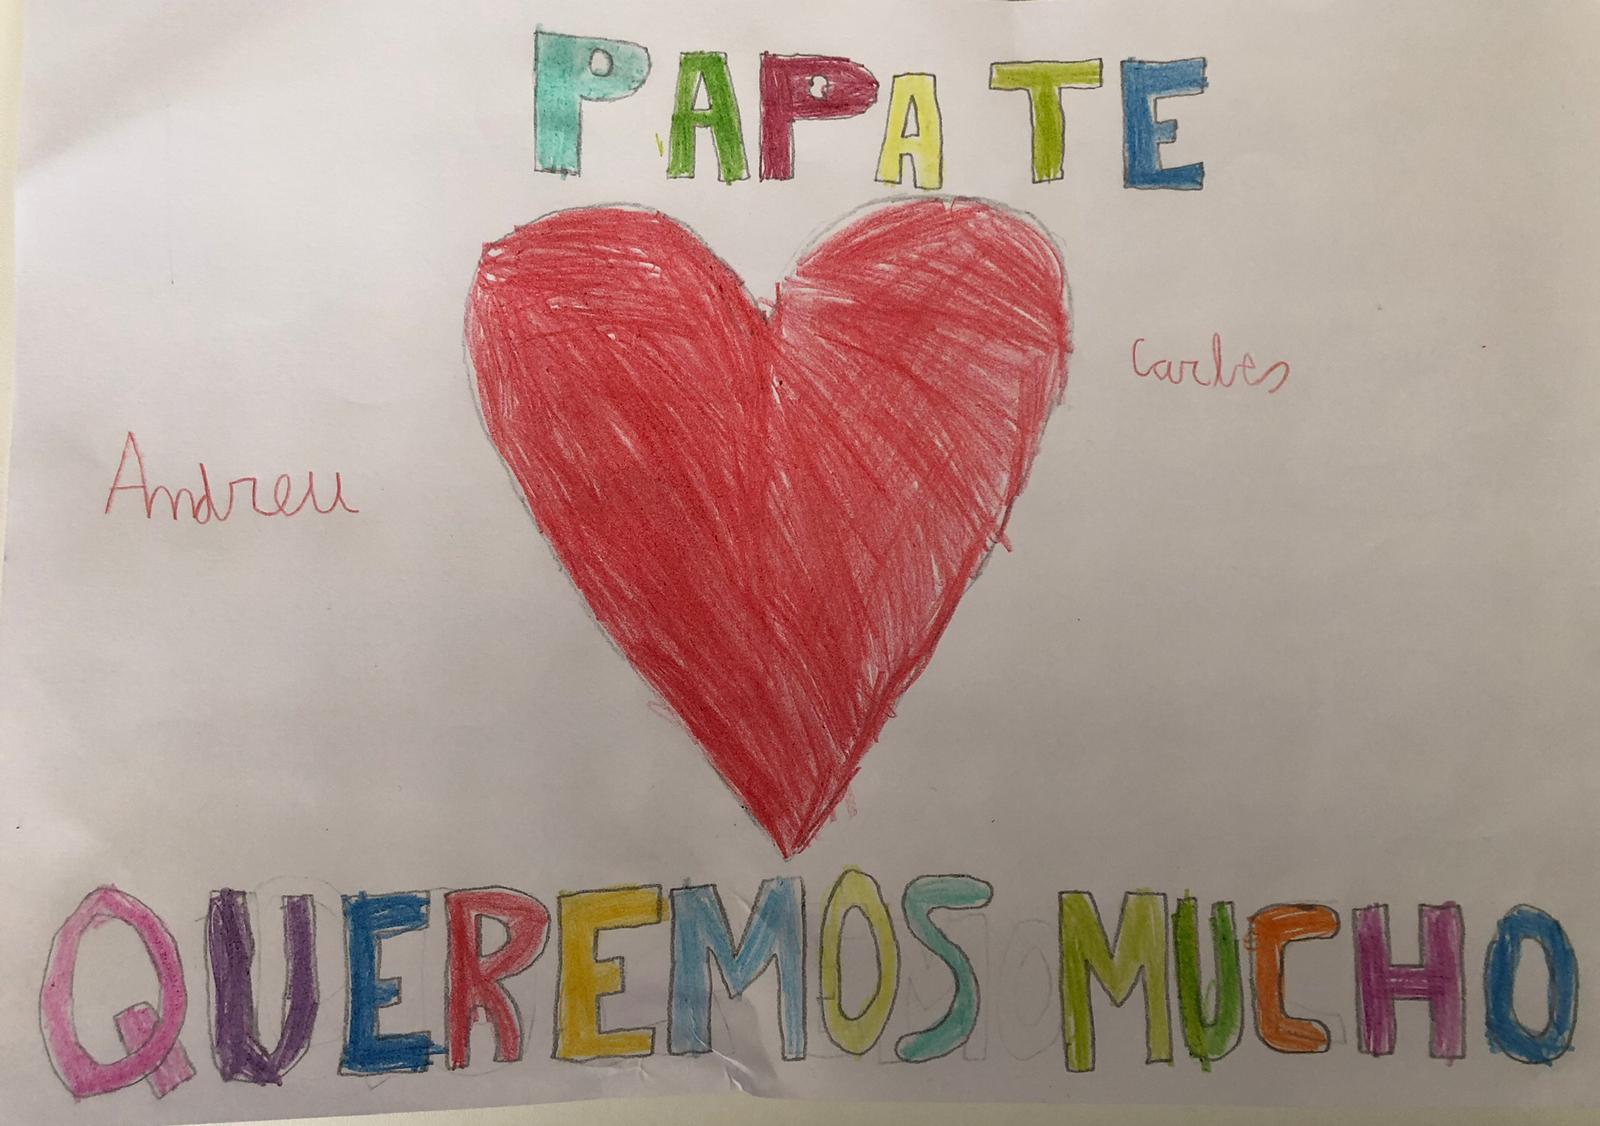 PAPA TE
Carles
Andreu
QUEREMOS MUCHO